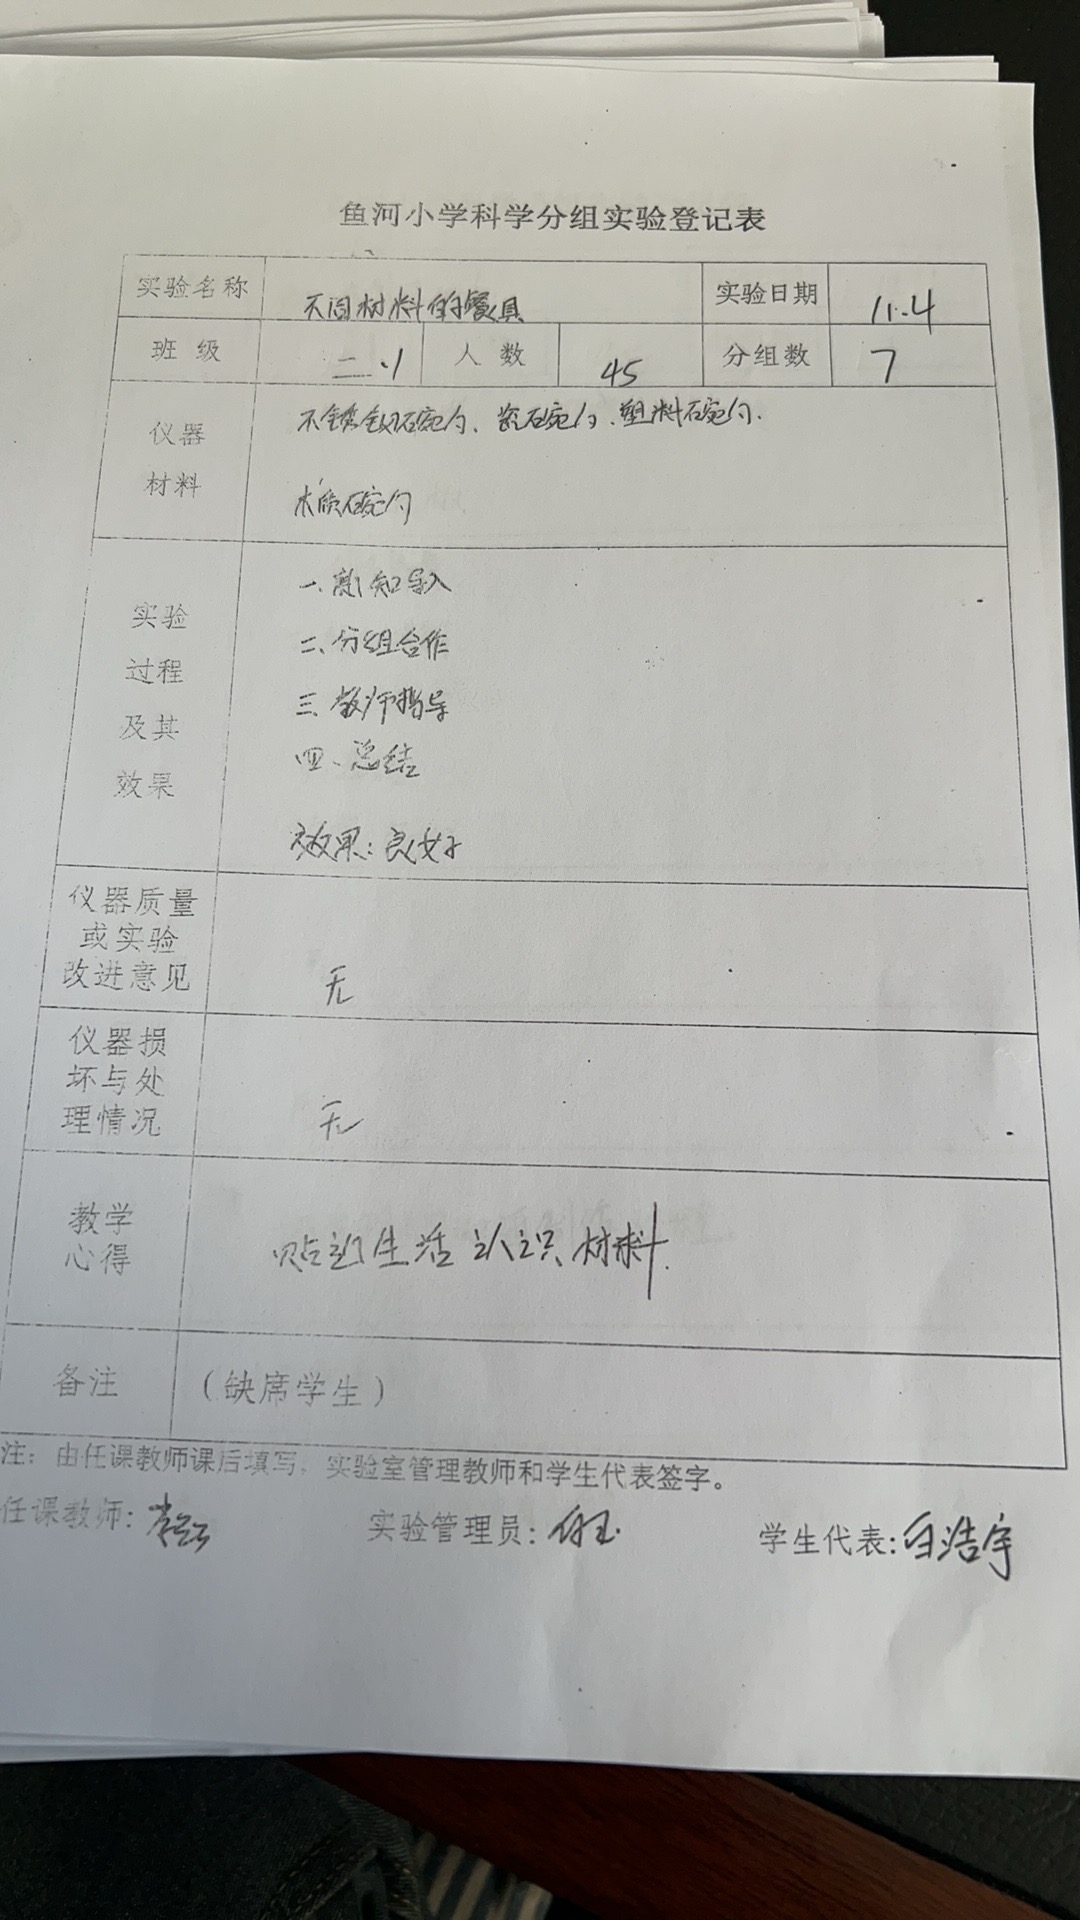 鱼河小学科学分组实验登记表
实验名称 不同材料的餐具 实验日期 11.4
班级 二.1 人数 45 分组数 7
仪器 不锈钢碗勺、瓷碗勺、塑料碗勺.
材料 木质碗勺
实验
过程
及其
效果
一、新知导入
二、分组合作
三、教师指导
四、总结
效果：良好
仪器质量
或实验
改进意见
无
仪器损
坏与处
理情况
无
教学
心得
贴近生活 认识材料.
备注 （缺席学生）
注：由任课教师课后填写，实验室管理教师和学生代表签字。
任课教师: 实验管理员: 学生代表:白浩宇